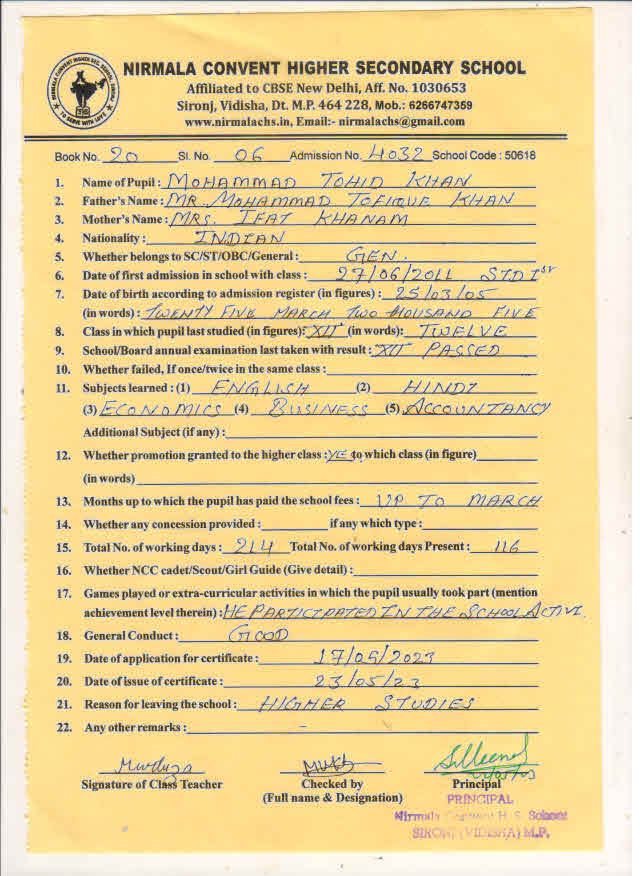 NIRMALA CONVENT HIGHER SECONDARY SCHOOL
Affiliated to CBSE New Delhi, Aff. No. 1030653
Sironj, Vidisha, Dt. M.P. 464 228, Mob.: 6266747359
www.nirmalachs.in, Email:- nirmalachs@gmail.com
Book No. 20 Sl. No. 06 Admission No. 4032 School Code : 50618
1. Name of Pupil : MOHAMMAD TOHID KHAN
2. Father's Name : MR. MOHAMMAD TOFIQUE KHAN
3. Mother's Name : MRS. IFAT KHANAM
4. Nationality : INDIAN
5. Whether belongs to SC/ST/OBC/General : GEN.
6. Date of first admission in school with class : 27/06/2011 STD Ist
7. Date of birth according to admission register (in figures) : 25/03/05
(in words) : TWENTY FIVE MARCH TWO THOUSAND FIVE
8. Class in which pupil last studied (in figures): XII (in words): TWELVE
9. School/Board annual examination last taken with result : XII PASSED
10. Whether failed, If once/twice in the same class :
11. Subjects learned : (1) ENGLISH (2) HINDI
(3) ECONOMICS (4) BUSINESS (5) ACCOUNTANCY
Additional Subject (if any) :
12. Whether promotion granted to the higher class : YES to which class (in figure)
(in words)
13. Months up to which the pupil has paid the school fees : UP TO MARCH
14. Whether any concession provided : if any which type :
15. Total No. of working days : 214 Total No. of working days Present : 116
16. Whether NCC cadet/Scout/Girl Guide (Give detail) :
17. Games played or extra-curricular activities in which the pupil usually took part (mention
achievement level therein) : HE PARTICIPATED IN THE SCHOOL ACTIVI.
18. General Conduct : GOOD
19. Date of application for certificate : 17/05/2023
20. Date of Issue of certificate : 23/05/23
21. Reason for leaving the school : HIGHER STUDIES
22. Any other remarks : -
Signature of Class Teacher Checked by Principal
(Full name & Designation) PRINCIPAL
Nirmala Convent H. S. School
SIRONJ (VIDISHA) M.P.